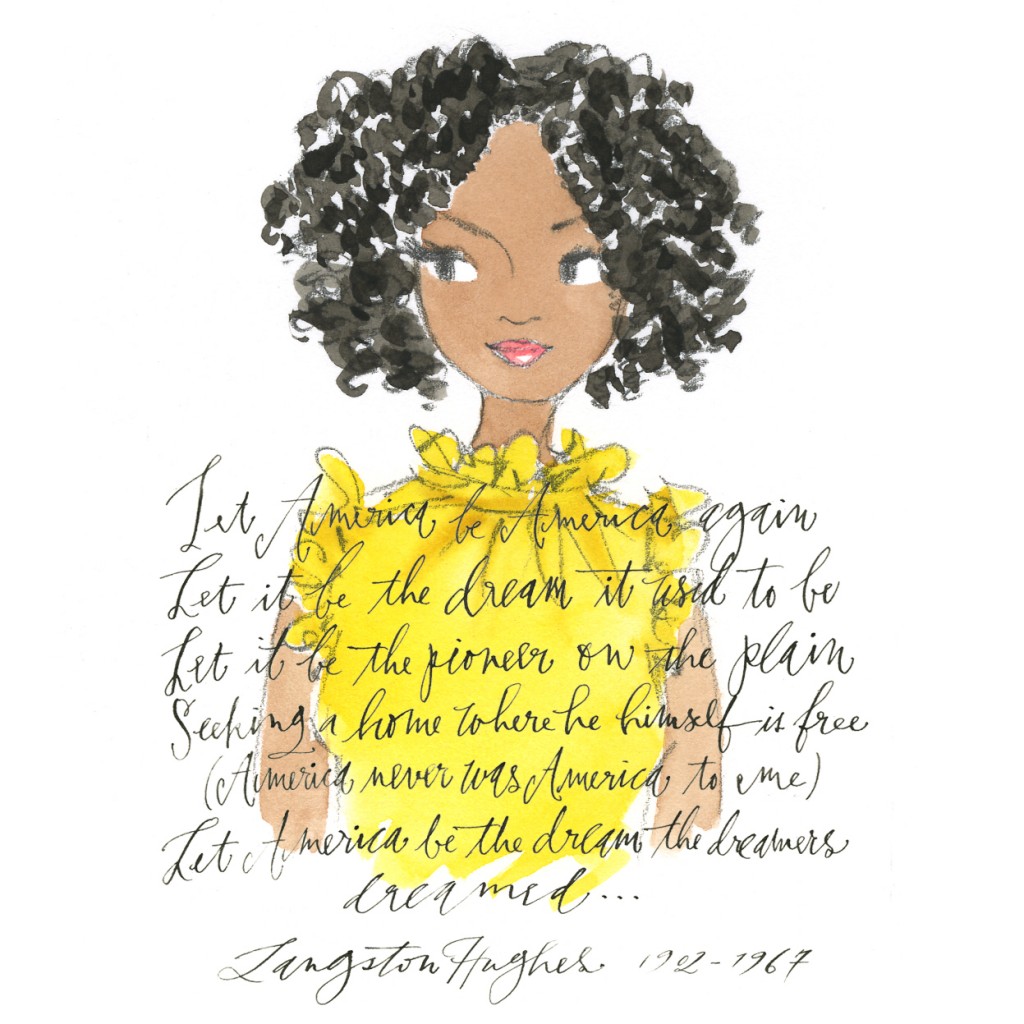 Let America be America again
Let it be the dream it used to be
Let it be the pioneer on the plain
Seeking a home where he himself is free
(America never was America to me)
Let America be the dream the dreamers
dreamed...
Langston Hughes 1902-1967